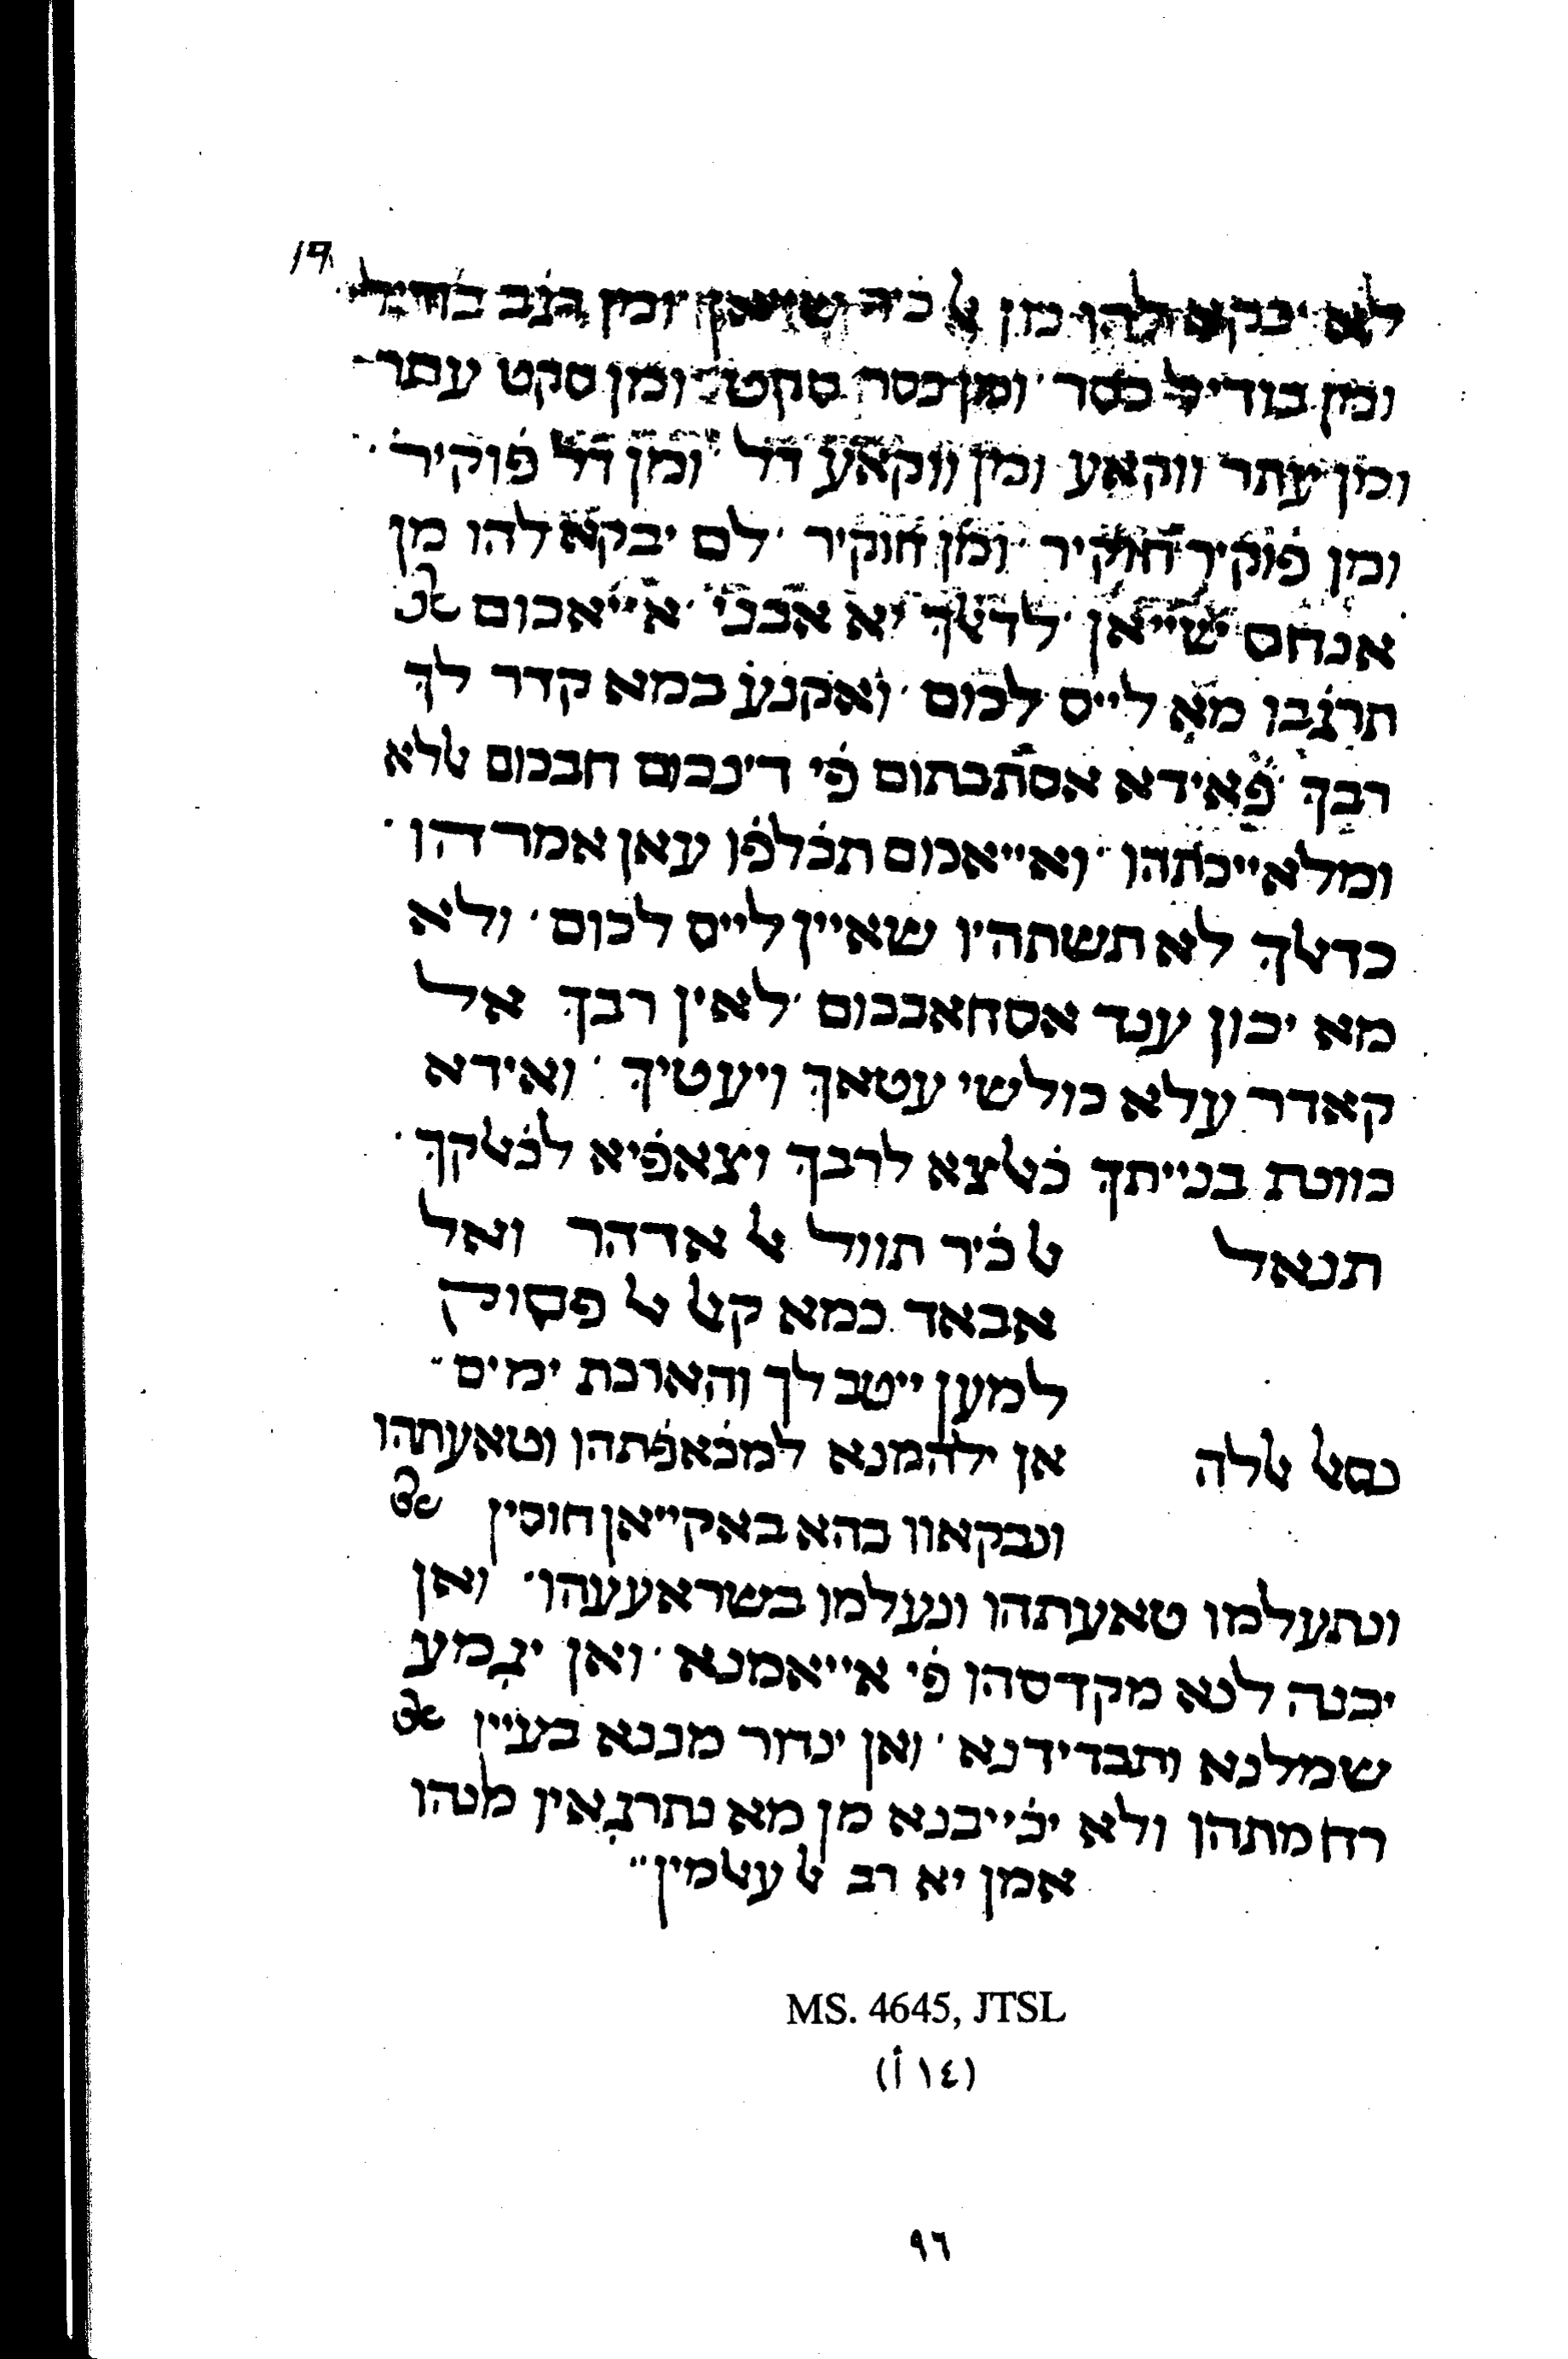 19
לא יבקא להו מן ﭏ כ̇יר שייאן ומן
ומן בודיל כסר ׳ ומן כסר סקט ׳ ומן סקט עתר
ומן עתר ווקאע ומן ווקאע דל ׳ ומן דל פ̇וקיר ׳
ומן פ̇וקיר חוקיר ׳ ומן חוקיר ׳ לם יבקא להו מן
אנחס שייאן ׳ לדﭏך יא אבני ׳ אייאכום
תרג̇בו מא לייס לכום ׳ ואקנע במא קדר לך
רבך ׳ פ̇אידא אסתבתום פ̇י דינכום חבכום ﭏלא
ומלאייכתהו ״ ואייאכום תכ̇לפ̇ו עאן אמרהו ׳
כדﭏך לא תשתהיו שאיין לייס לכום ׳ ולא
מא יכון ענד אסחאבכום ׳ לאין רבך אל
קאדר עלא כולשי עטאך ויעטיך ׳ ואידא
כוונת בנייתך כ̇ﭏצא לרבך וצאפ̇יא לכ̇ﭏקך ׳
תנאל ﭏ כ̇יר תוול ﭏ אדהר ואל
אבאד כמא קﭏ ﭏ פסוק
למען ייטב לך והארכת ימים ״
נסﭏ ﭏלה אן ילהמנא למכ̇אפ̇תהו וטאעתהו
ונבקאוו בהא באקייאן חוסין
ונתעלמו טאעתהו ונעלמו בשראעעהו ׳ ואן
יבנה לנא מקדסהו פ̇י אייאמנא ׳ ואן יג̇מע
שמלנא ותבדידנא ׳ ואן ינחר מננא בעיין
רחמתהו ולא יכ̇ייבנא מן מא נתרג̇אין מנהו
אמן יא רב ﭏ עﭏמין ״
MS. 4645, JTSL
(١٤ أ)
٩٦